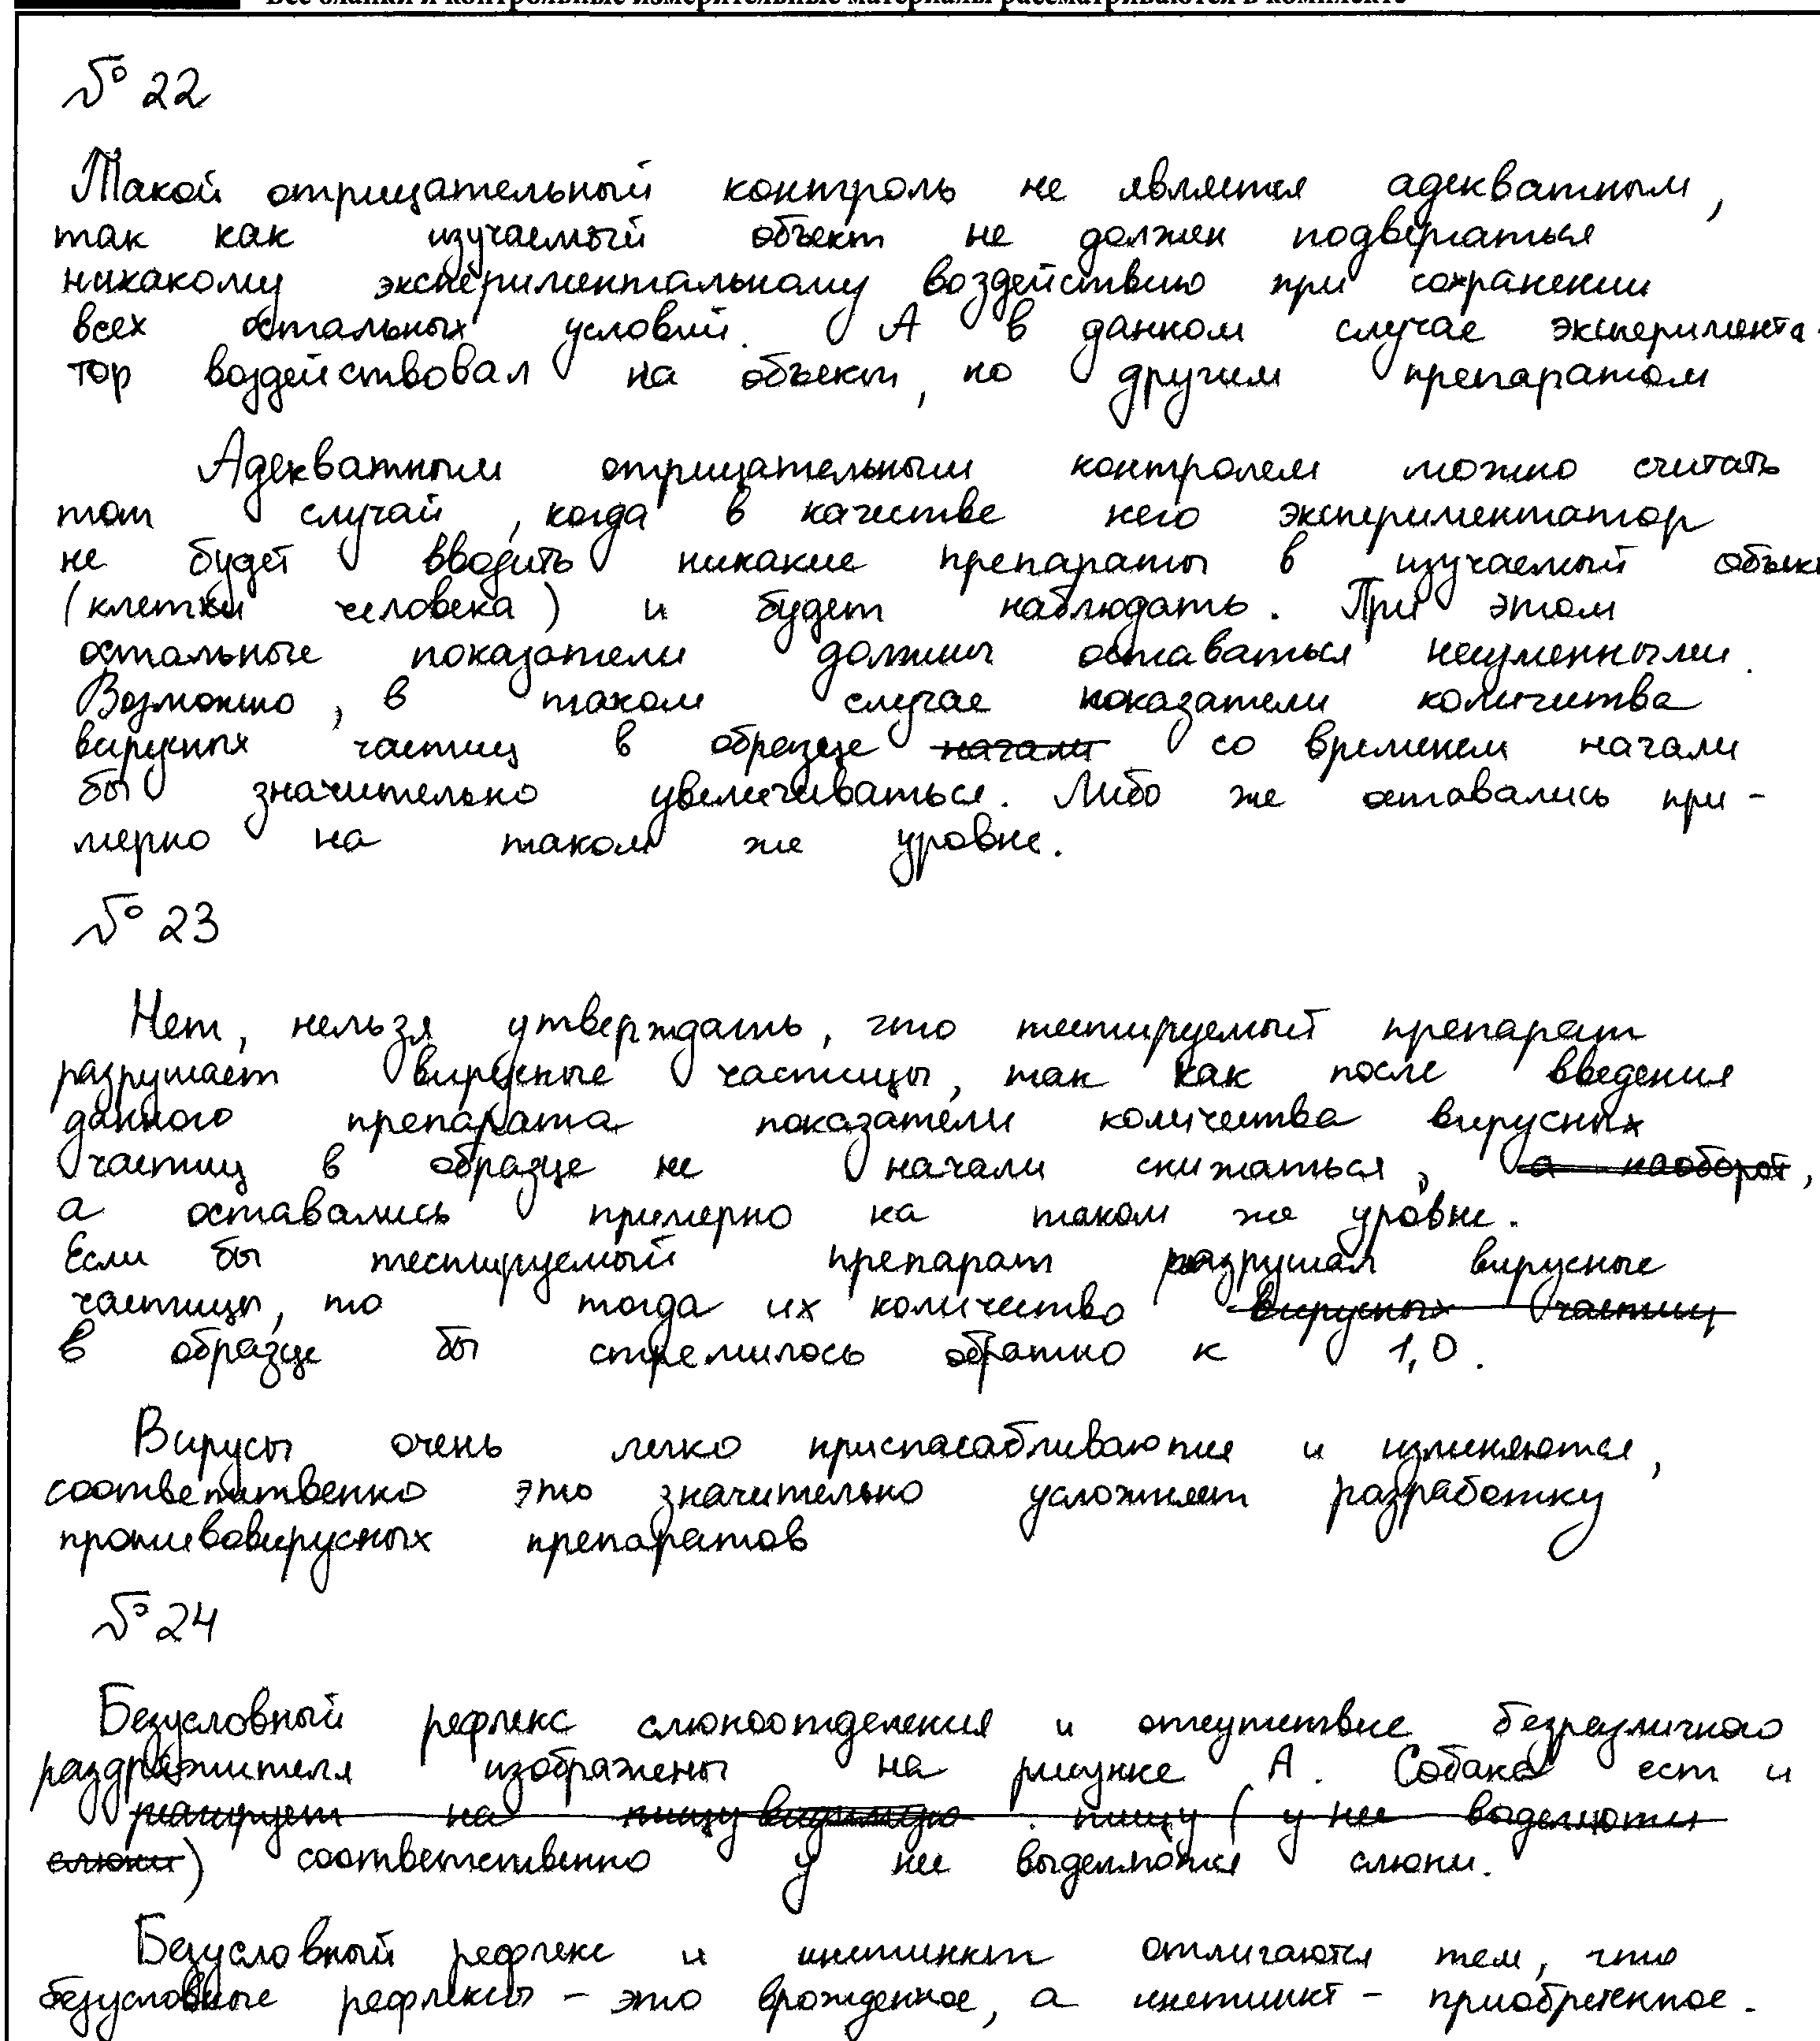 Все бланки и контрольные измерительные материалы рассматриваются в комплекте
№ 22
Такой отрицательный контроль не является адекватным,
так как изучаемый объект не должен подвергаться
никакому экспериментальному воздействию при сохранении
всех остальных условий. А в данном случае эксперимента-
тор воздействовал на объект, но другим препаратом
Адекватным отрицательным контролем можно считать
тот случай, когда в качестве него экспериментатор
не будет вводить никакие препараты в изучаемый объект
(клетки человека) и будет наблюдать. При этом
остальные показатели должны оставаться неизменными.
Возможно, в таком случае показатели количества
вирусных частиц в образце начали со временем начали
бы значительно увеличиваться. Либо же оставались при-
мерно на таком же уровне.
№ 23
Нет, нельзя утверждать, что тестируемый препарат
разрушает вирусные частицы, так как после введения
данного препарата показатели количества вирусных
частиц в образце не начали снижаться, а наоборот,
а оставались примерно на таком же уровне.
Если бы тестируемый препарат разрушал вирусные
частицы, то тогда их количество вирусных частиц
в образце бы стремилось обратно к 1,0.
Вирусы очень легко приспасабливаются и изменяются,
соответственно это значительно усложняет разработку
противовирусных препаратов
№ 24
Безусловный рефлекс слюноотделения и отсутствие безразличного
раздражителя изображены на рисунке А. Собака ест и
реагирует на пищу пищу (у нее выделяются
слюни) соответственно у нее выделяются слюни.
Безусловный рефлекс и инстинкт отличаются тем, что
безусловные рефлексы – это врожденное, а инстинкт – приобретенное.